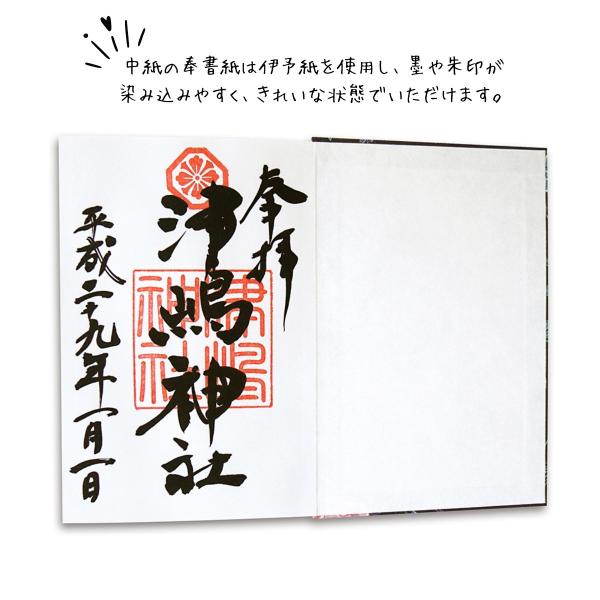 中紙の奉書紙は伊予紙を使用し、墨や朱印が
染み込みやすく、きれいな状態でいただけます。
奉拝
津嶋神社
津嶋神社
平成二十九年一月一日